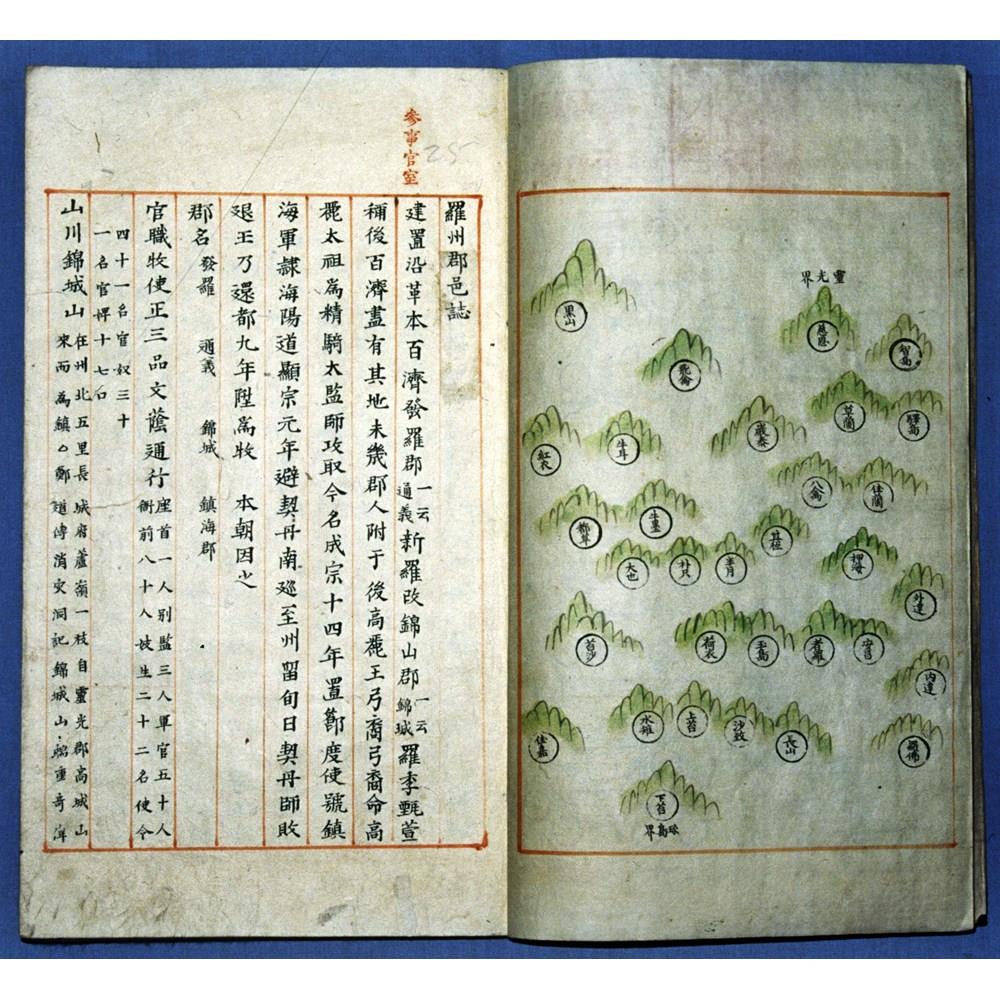 參事官室
25
羅州郡邑誌
建置沿革本百濟發羅郡一云通義新羅改錦山郡一云錦城羅季甄萱
稱後百濟盡有其地未幾郡人附于後高麗王弓裔弓裔命高
麗太祖爲精騎太監師攻取今名成宗十四年置節度使號鎭
海軍隷海陽道顯宗元年避契丹南廵至州留旬日契丹師敗
退王乃還都九年陞爲牧 本朝因之
郡名 發羅 通義 錦城 鎭海郡
官職牧使正三品文蔭通行座首一人別監三人軍官五十人
衙前八十人妓生二十二名使令
四十一名官奴三十
一名官婢十七口
山川錦城山在州北五里長城府蘆嶺一枝自靈光郡高城山
來而爲鎭鄭道傳消灾洞記錦城山端重奇
靈光界
慈恩
智島
黑山
飛禽
草蘭
驛島
嚴泰
牛耳
紅衣
八禽
佳蘭
都草
牛墨
其佐
大也
朴只
半月
押海
外達
苔沙
荷衣
玉島
者羅
安昌
內達
水雉
上苔
沙致
長山
佳嘉
羅佛
下苔
珍島界